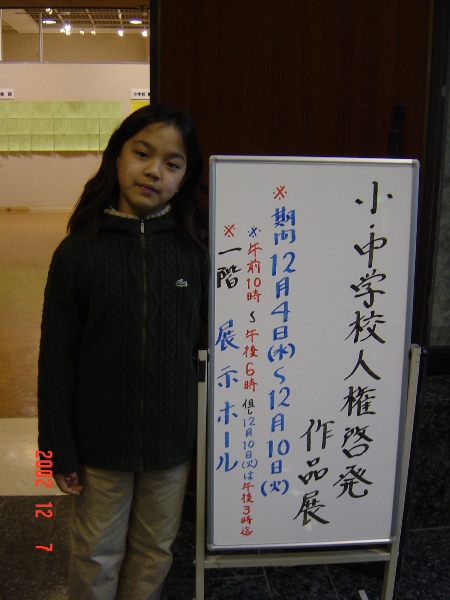 小・中学校人権啓発
作品展
※期間12月4日(水)～12月10日(火)
※午前10時～午後6時 但し12月10日(火)は午後3時迄
※一階 展示ホール
2002 12 7